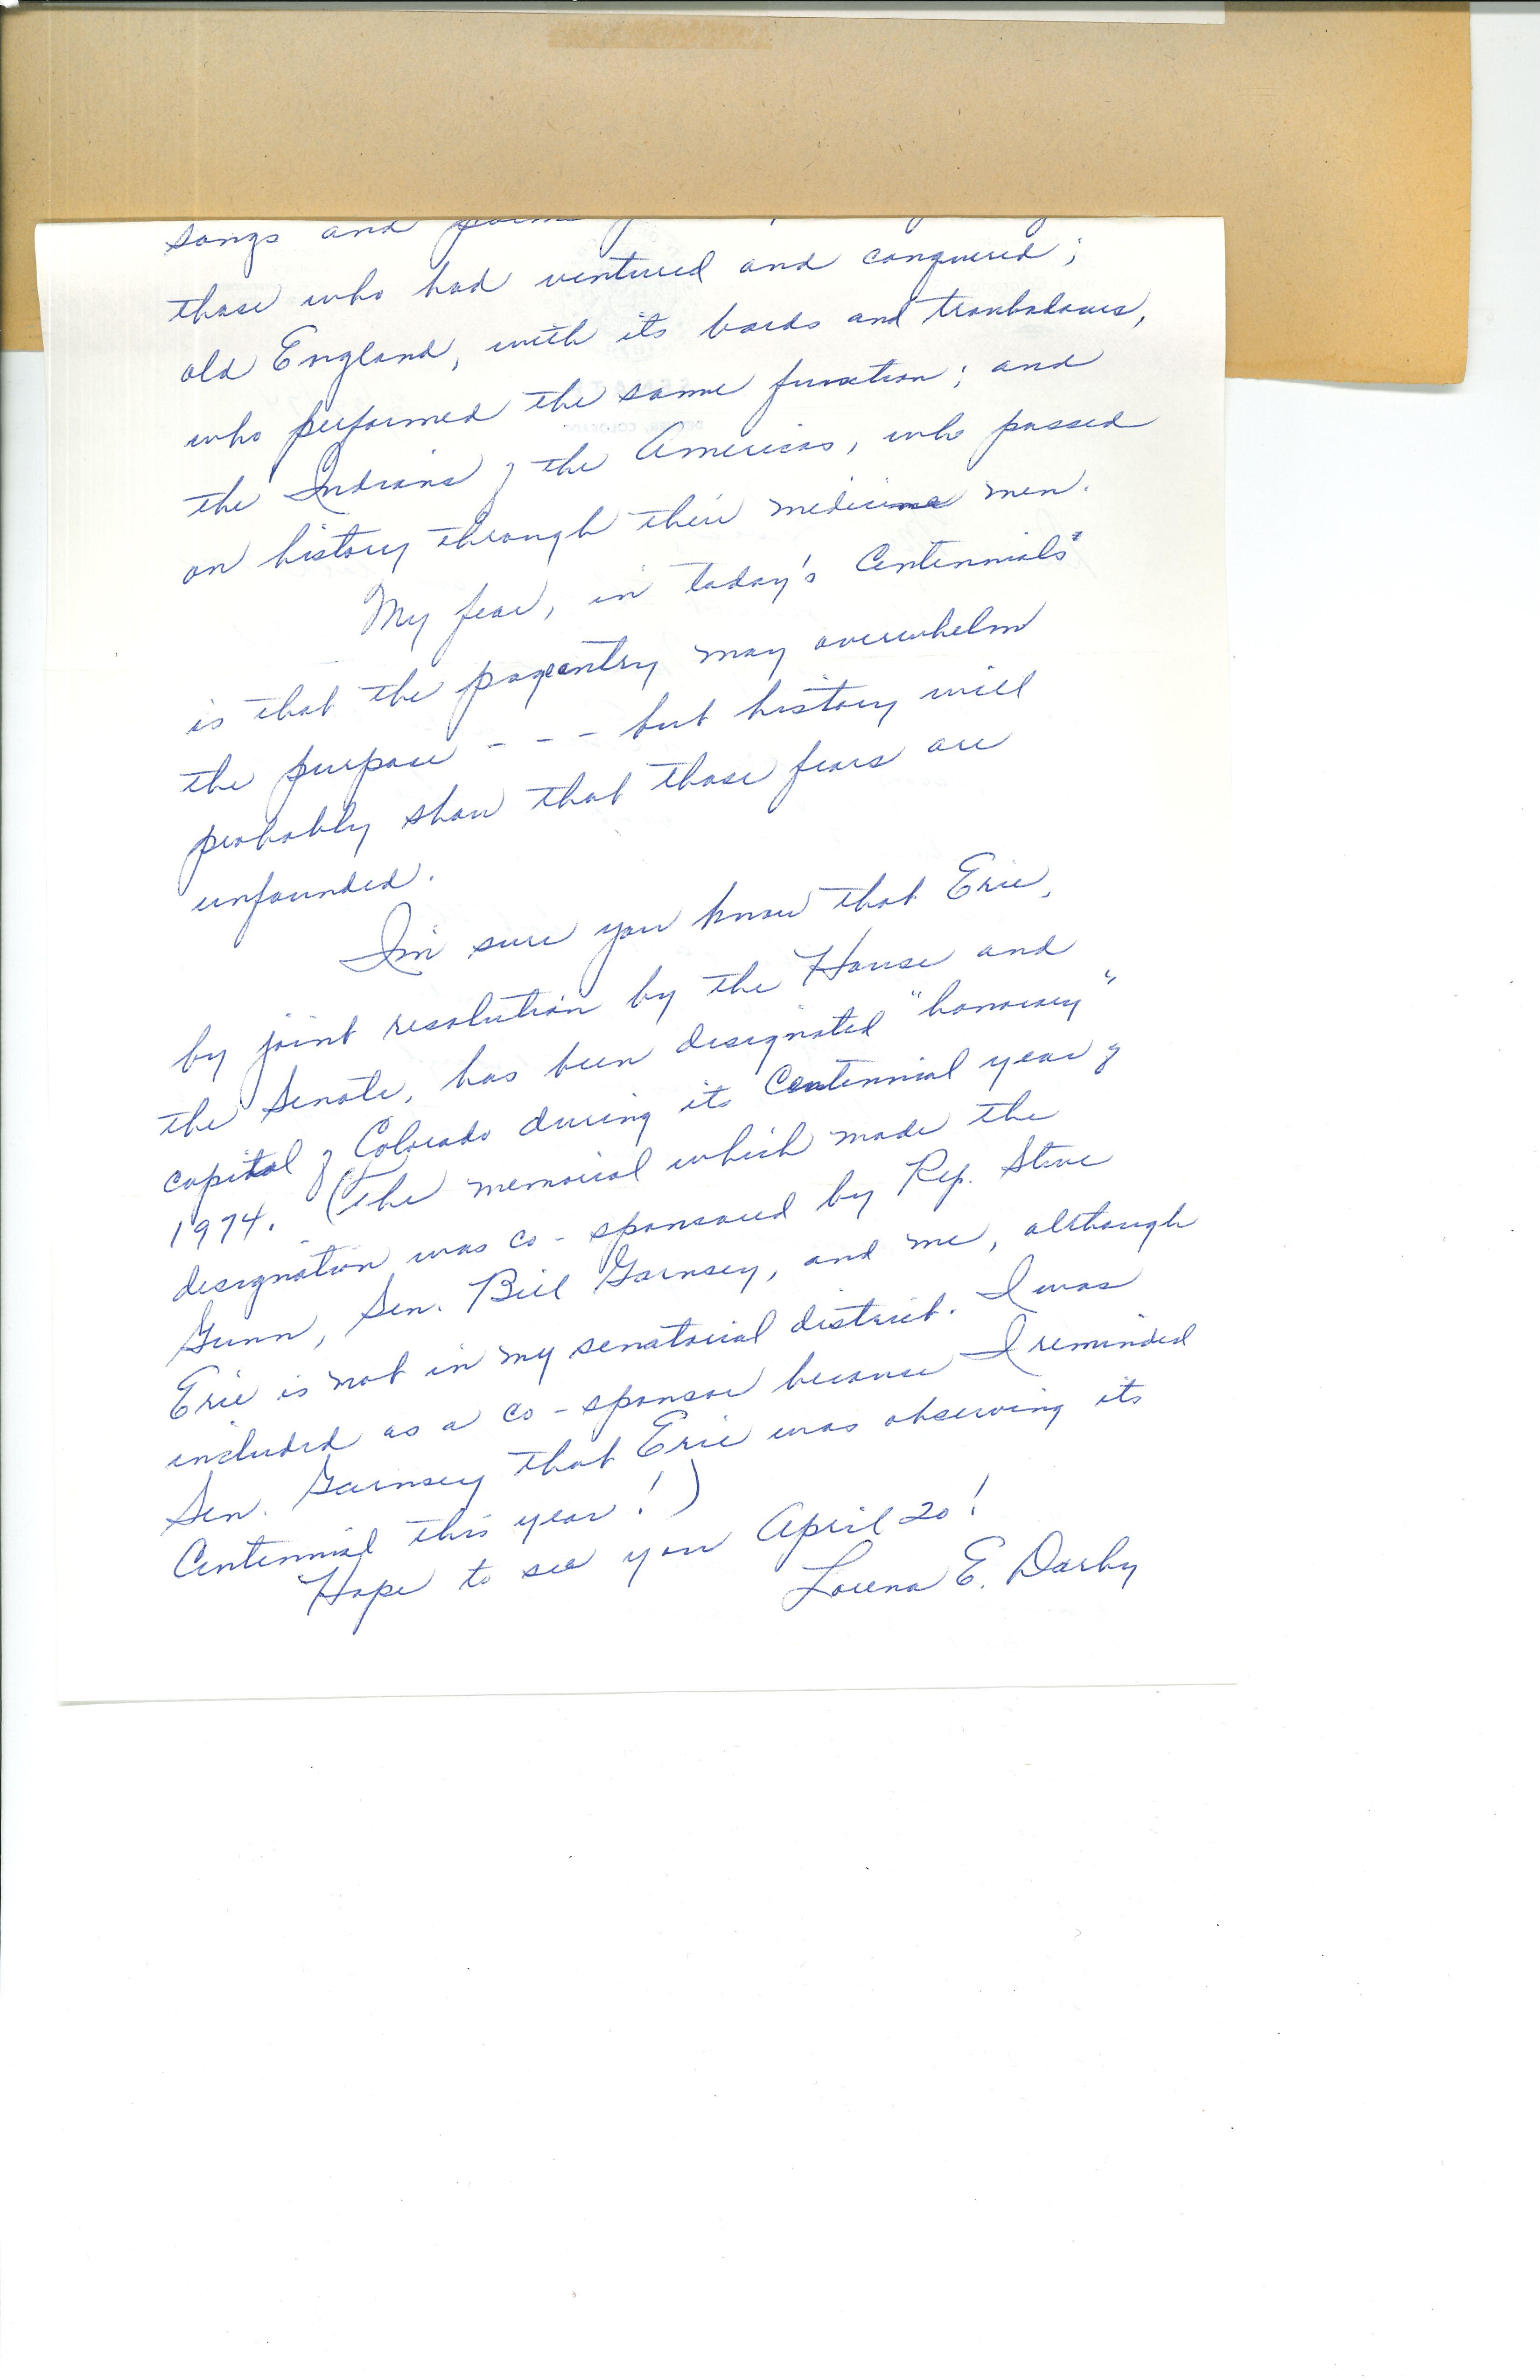 songs and
those who had ventured and conquered;
old England, with its bards and troubadours,
who performed the same function; and
the Indians of the Americas, who passed
on history through their medicine men.
My fear, in today's Centennials
is that the pageantry may overwhelm
the purpose - - - but history will
probably show that those fears are
unfounded.
I'm sure you know that Erie,
by joint resolution by the House and
the Senate, has been designated "honorary"
capital of Colorado during its Centennial year of
1974. (The memorial which made the
designation was co-sponsored by Rep. Steve
Gunn, Sen. Bill Garnsey, and me, although
Erie is not in my senatorial district. I was
included as a co-sponsor because I reminded
Sen. Garnsey that Erie was observing its
Centennial this year!)
Hope to see you April 20!
Lorena E. Darby